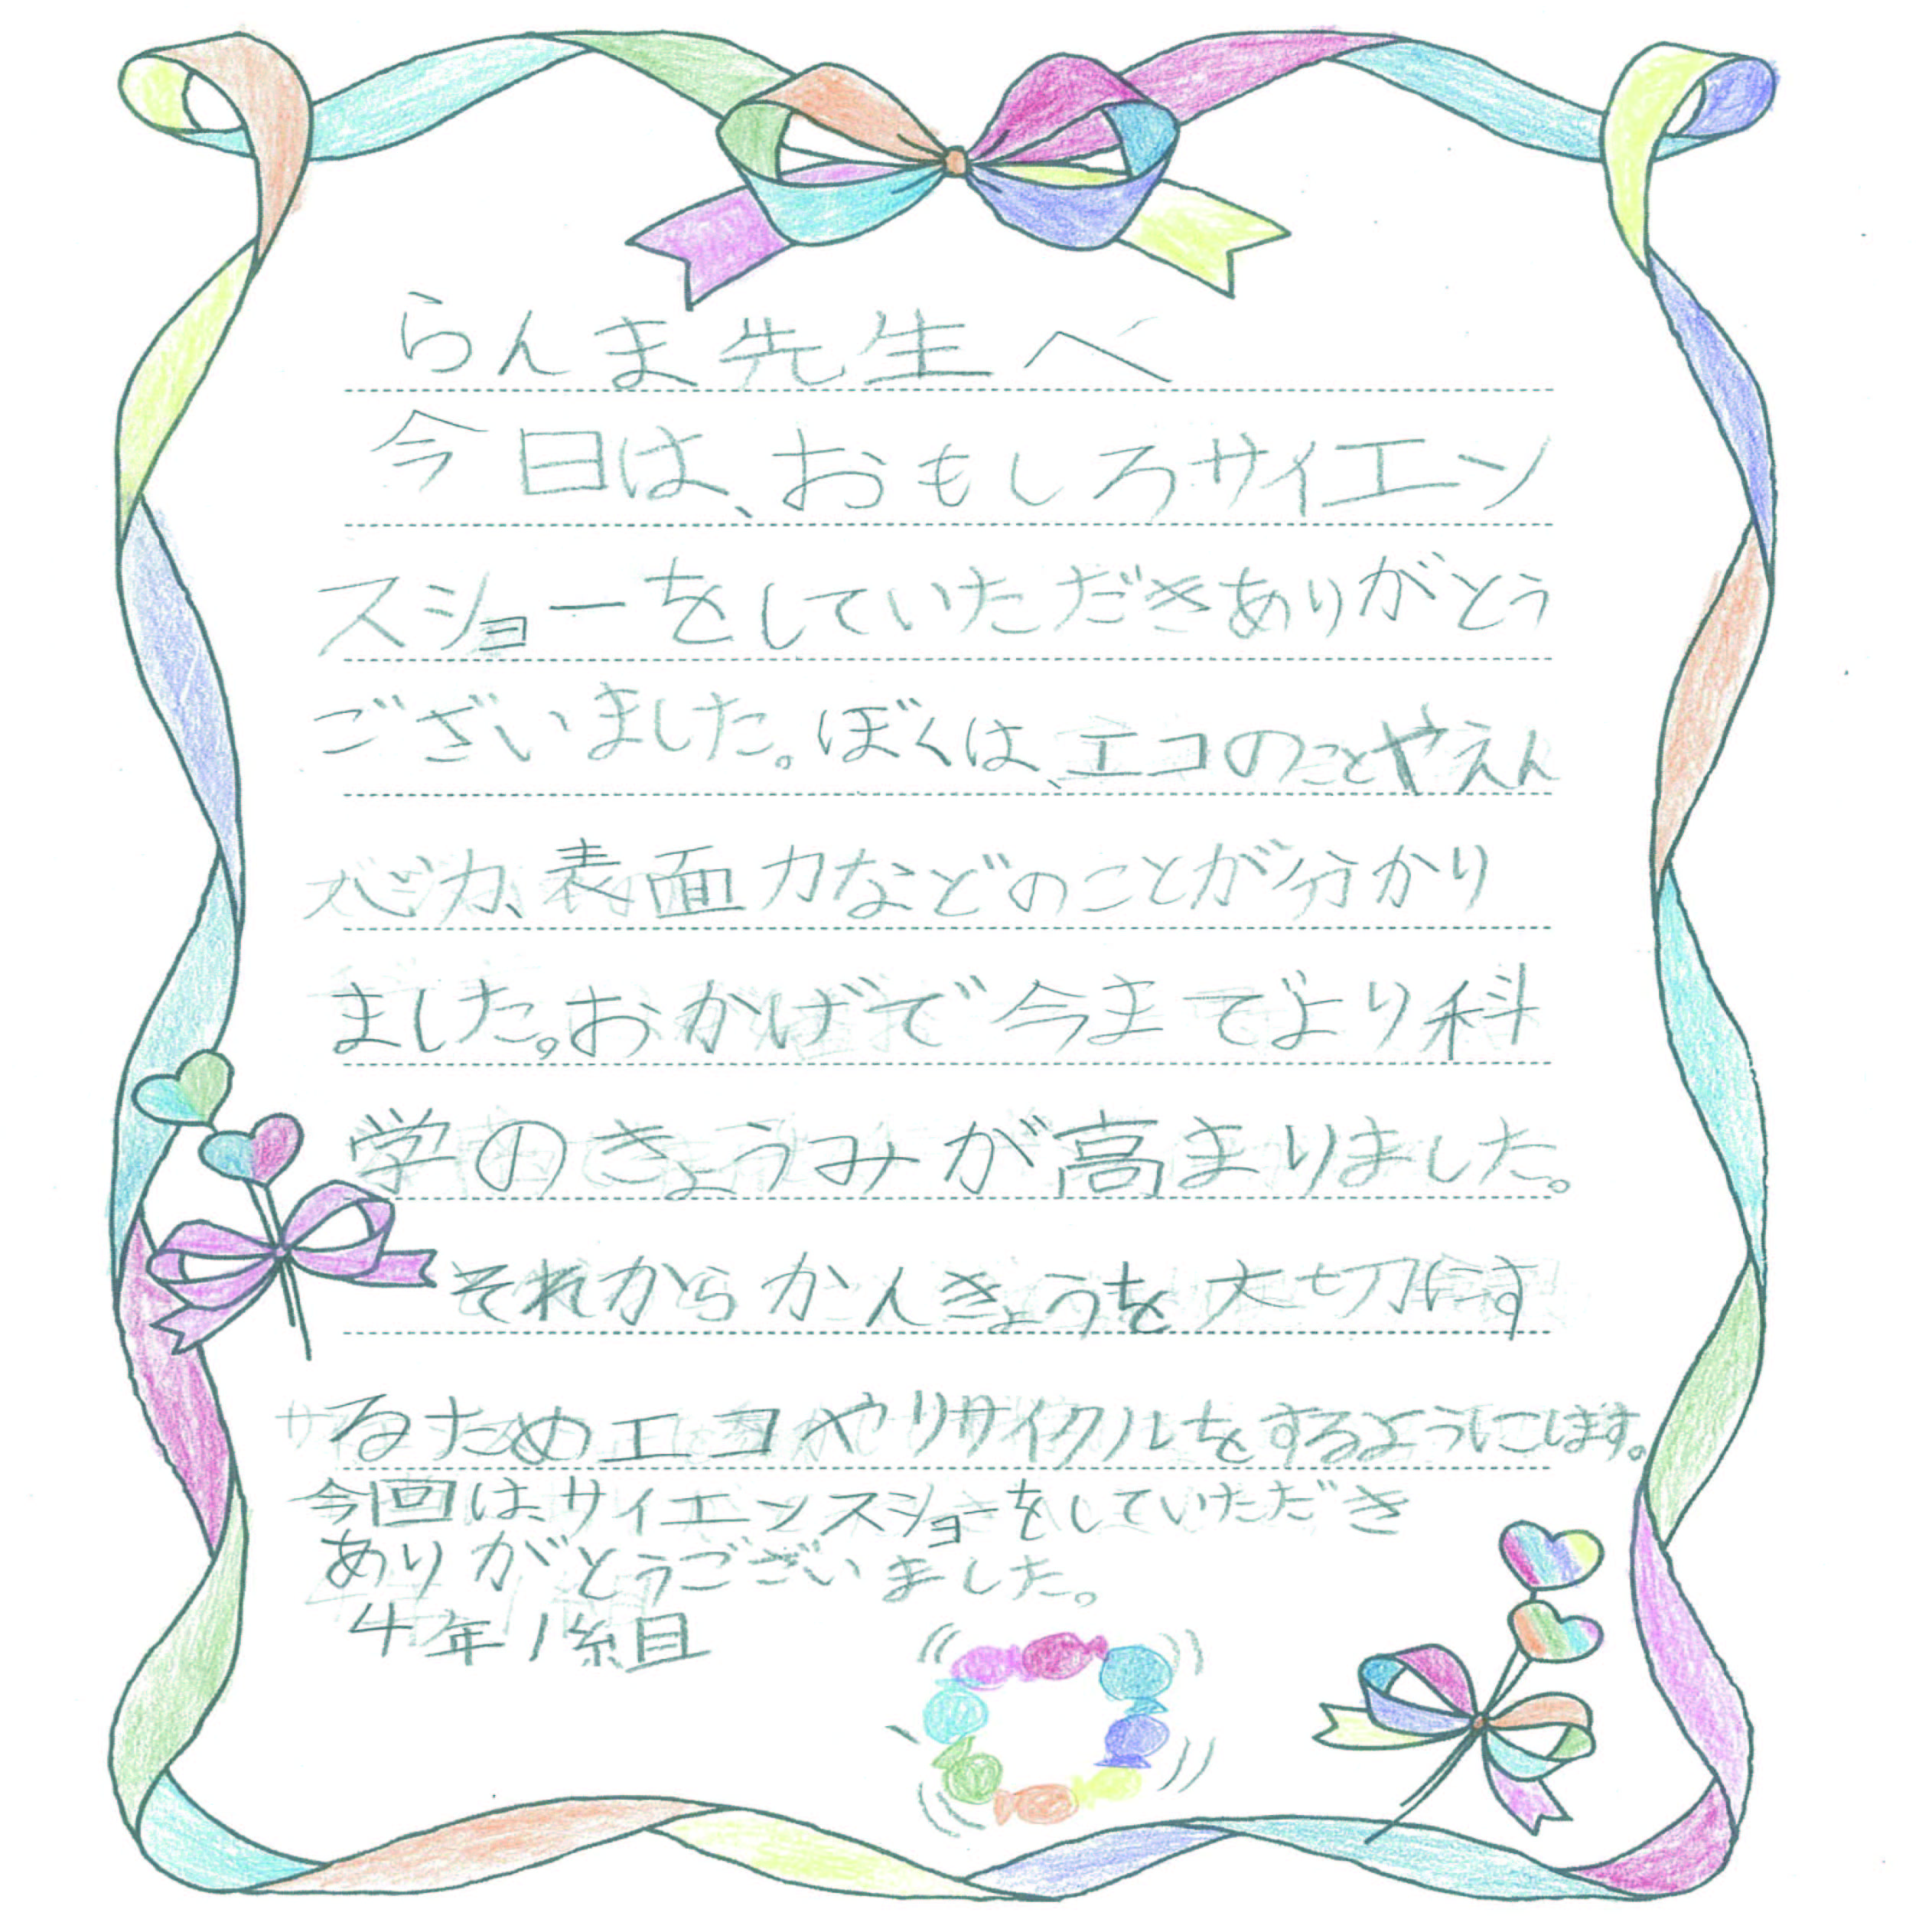 らんま先生へ
今日は、おもしろサイエン
スショーをしていただきありがとう
ございました。ぼくは、エコのことやえん
心力、表面力などのことが分かり
ました。おかげで今までより科
学のきょうみが高まりました。
それからかんきょうを大切にす
るためエコやリサイクルをするようにします。
今回は、サイエンスショーをしていただき
ありがとうございました。
4年1組